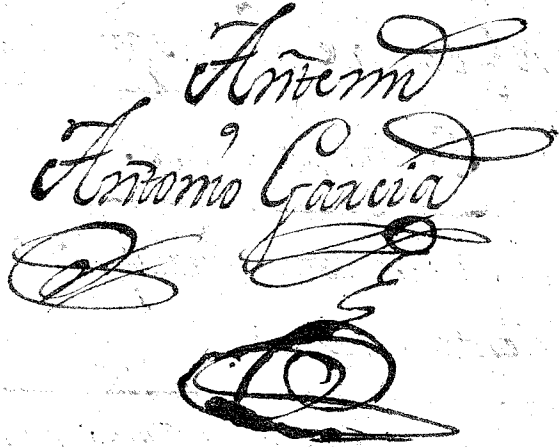 Ante mí
Antonio García